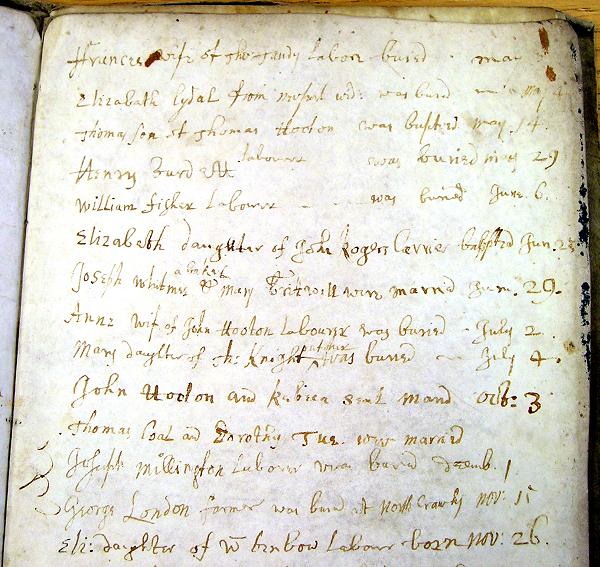 Frances wife of Tho: tandy Labour buried may
Elizabath Eydal from wid: was burd may 4
Thomas son of Thomas Hooton was baptized may 14
Henry Burdett labourer was buried may 29
William fisher Labourer was buried June 6.
Elizabeth daughter of John Rogers Carrier babptzd Jun. 23
Joseph Whitmes a & mary were marned Jun. 29.
Anne wife of John Hooton Labourer was buried July 2
Mary daughter of tho Knight was buried July 4.
John Hooton and Rebeca marid Octb: 3
Thomas Coal and Dorothy Tue. were marrid
Joseph millington Labourer was buried dzemb. 1
George London farmer was burd at North Crawly Nov: 15
Eli: daughter of W binbow Labourer born Nov: 26.